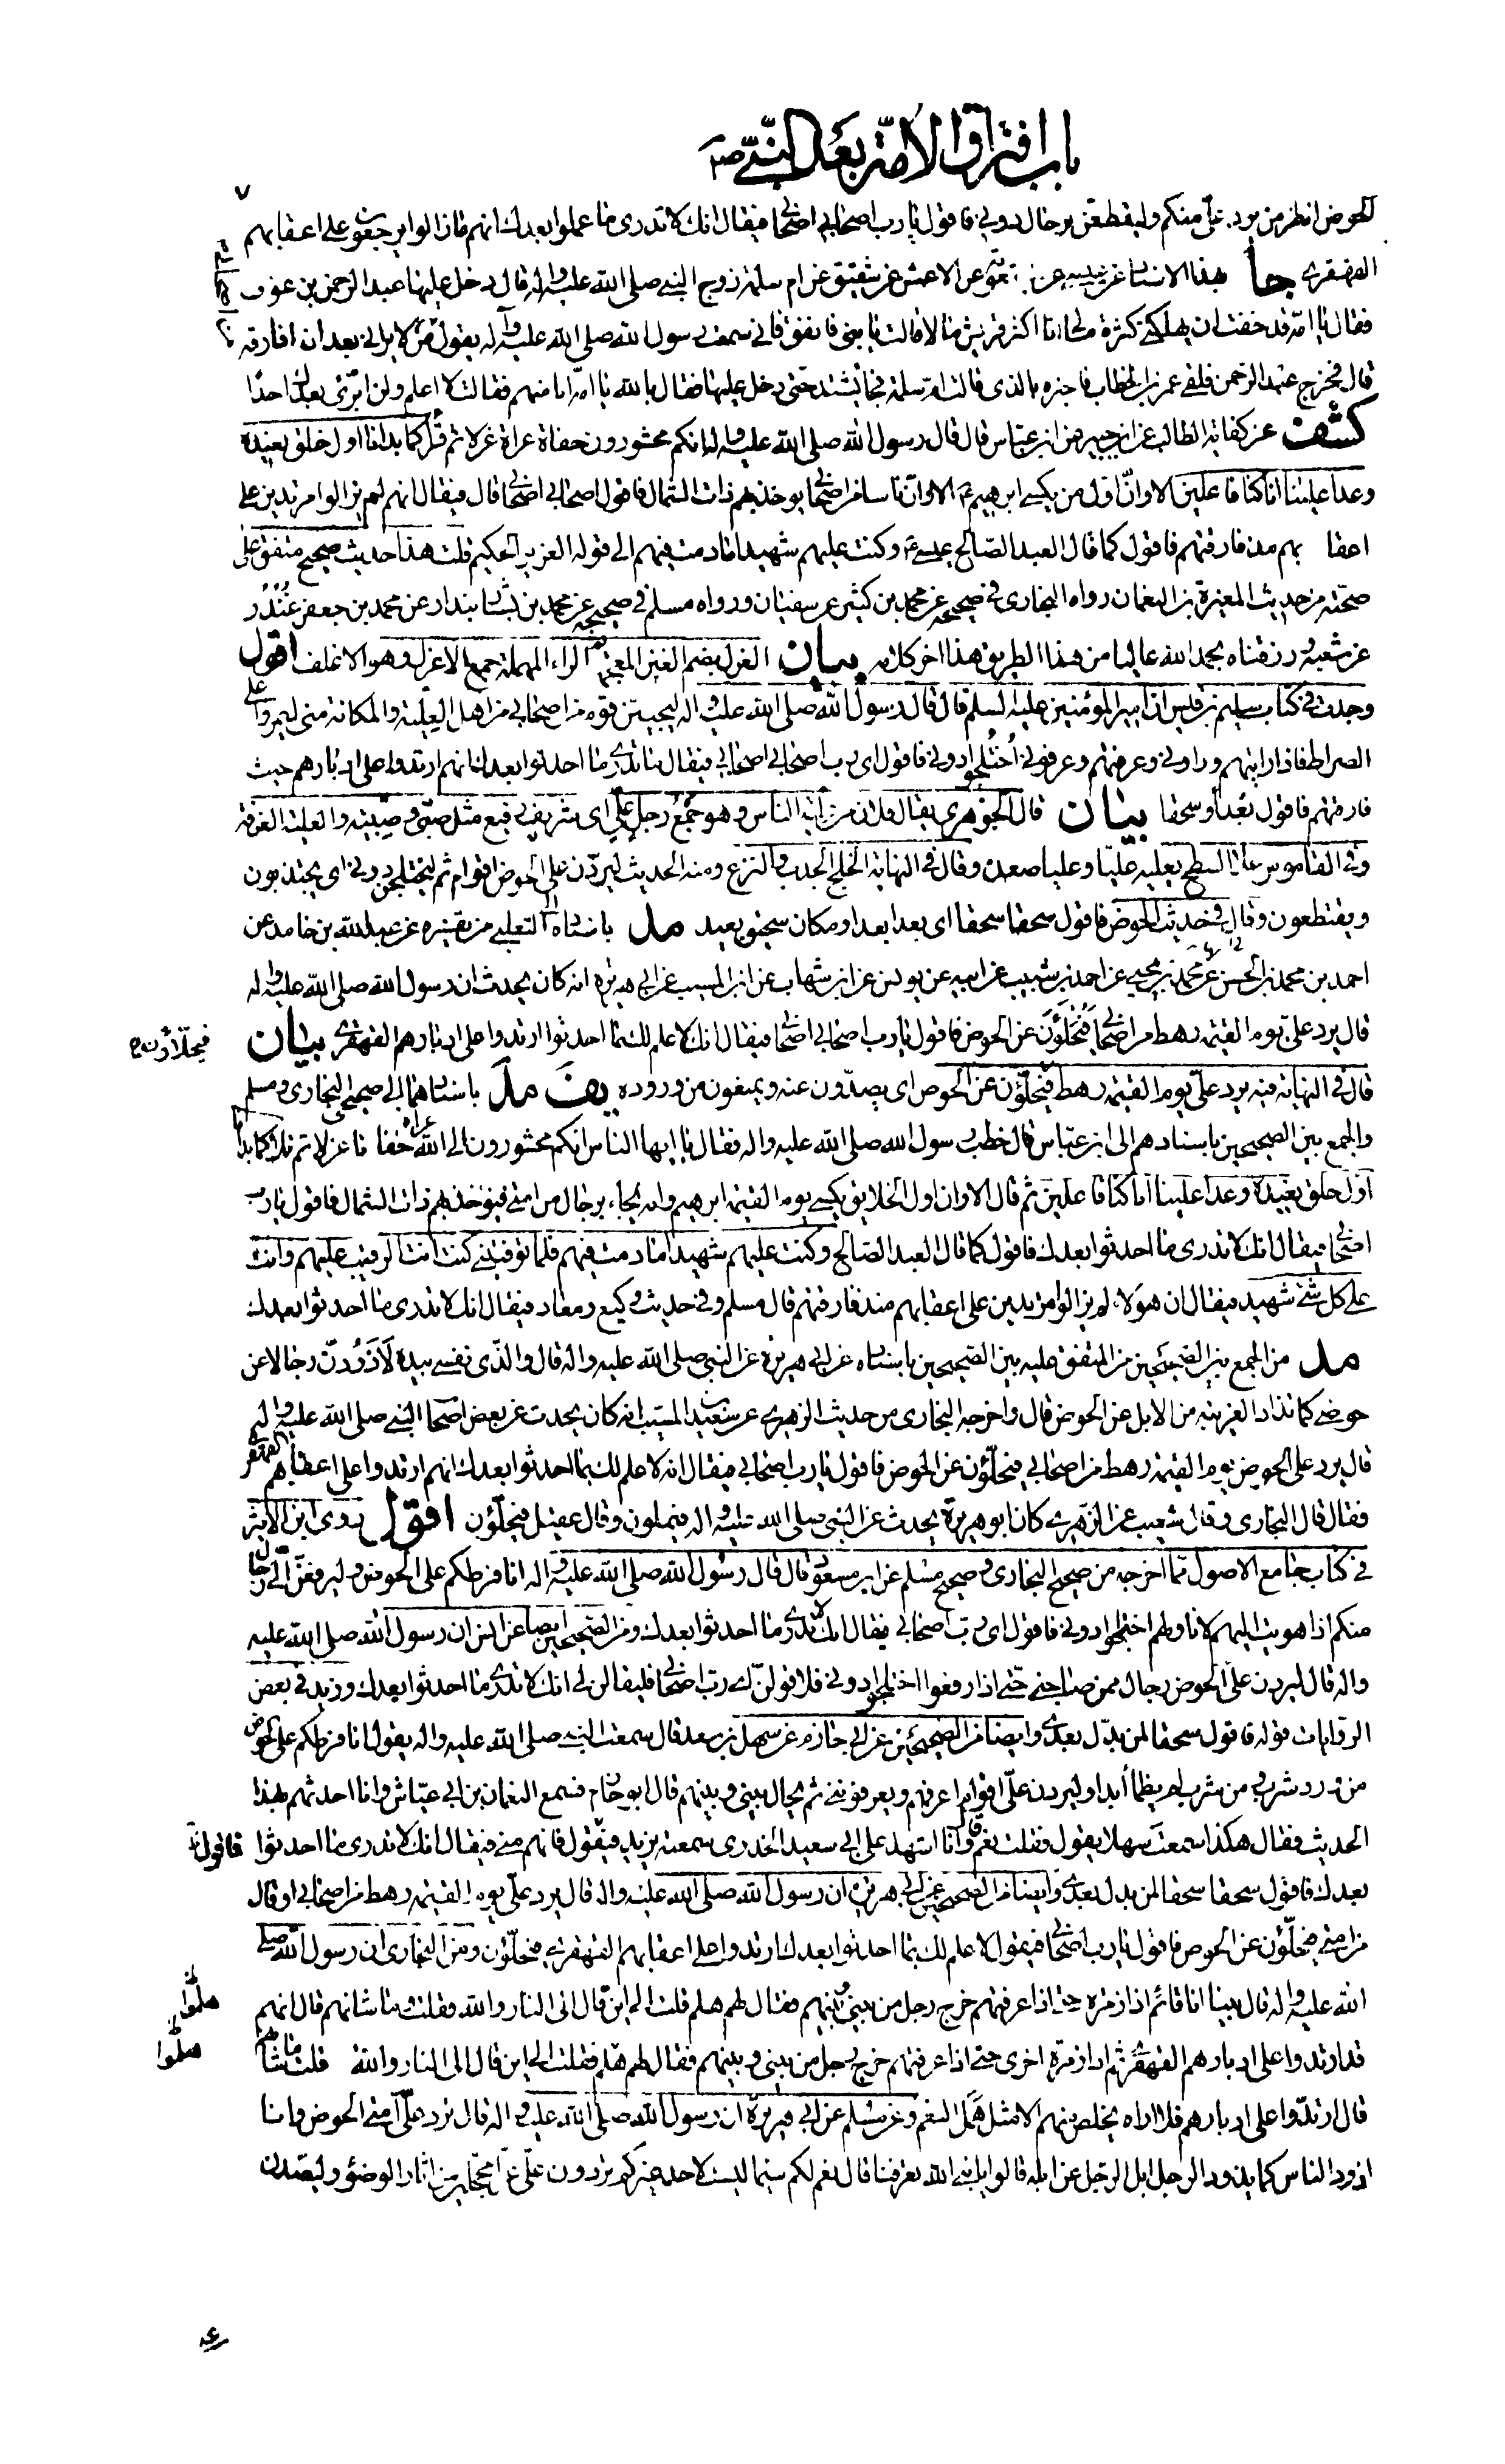 باب افتراق الامّة بعد النبيّ ص
٧
الحوض انظر من يرد علىّ منكم وليقطعنّ برجال دونى فاقول يا رب اصحابى اصحابى فيقال انك لا تدرى ما عملوا بعدك انهم ما زالوا يرجعون على اعقابهم
القهقرى جا بهذا الاسناد عن عن الاعمش عن شقيق عن ام سلمة زوج النبي صلى الله عليه واله قال دخل عليها عبد الرحمن بن عوف
فقال يا امّه قد خفت ان يهلكنى كثرة مالى انا اكثر قريش مالا قالت يا بنى فانفق فانى سمعت رسول الله صلى الله عليه واله يقول من اصحابى من لا يرانى بعد ان افارقه
قال فخرج عبد الرحمن فلقى عمر بن الخطاب فاخبره بالذى قالت ام سلمة فجاء يشتد حتى دخل عليها فقال بالله يا امّه انا منهم فقالت لا اعلم ولن ابرّئ بعدك احدا
كشف عن كفاية الطالب عن ابن جبير عن ابن عباس قال قال رسول الله صلى الله عليه واله انكم محشورون حفاة عراة غرلا ثم قرأ كما بدأنا اول خلق نعيده
وعدا علينا انا كنا فاعلين الا وانّ اول من يكسى ابرهيم ع الا وانّ ناسا من اصحابى يوخذ بهم ذات الشمال فاقول اصحابى اصحابى قال فيقال انهم لم يزالوا مرتدين على
اعقابهم مذ فارقتهم فاقول كما قال العبد الصالح عيسى ع وكنت عليهم شهيدا ما دمت فيهم الى قوله العزيز الحكيم قلت هذا حديث صحيح متفق على
صحته من حديث المغيرة بن النعمان رواه البخارى فى صحيحه عن محمد بن كثير عن سفيان ورواه مسلم فى صحيحه عن محمد بن بشار بندار عن محمد بن جعفر غُندُر
عن شعبة ورزقناه بحمد الله عاليا من هذا الطريق هذا اخر كلامه بيان الغرل بضم الغين المعجمة ثم الراء المهملة جمع الاغرل وهو الاغلف اقول
وجدت فى كتاب سليم بن قيس ان امير المؤمنين عليه السلم قال قال رسول الله صلى الله عليه واله ليجيئنّ قوم من اصحابى من اهل العِلّية والمكانة منى ليمروا على
الصراط فاذا رايتهم وراونى وعرفتهم وعرفونى اُختُلجوا دونى فاقول اى رب اصحابى اصحابى فيقال ما تدرى ما احدثوا بعدك انهم ارتدوا على ادبارهم حيث
فارقتهم فاقول بُعدا وسحقا بيان قال الجوهرى يقال فلان من عِلْية الناس وهو جمع رجل علىّ اى شريف رفيع مثل صبىّ وصِبية والعلية الغرفة
وفى القاموس علا السطح يعليه عليا وعليا صعده وقال فى النهاية الخلج الجذب والنزع ومنه الحديث ليردّن على الحوض اقوام ثم ليختلجن دونى اى يجتذبون
ويقتطعون وقال فى حديث الحوض فاقول سحقا سحقا اى بعدا بعدا ومكان سحيق بعيد مد باسناده الى الثعلبى من تفسيره عن عبد الله بن حامد عن
احمد بن محمد بن الحسن عن محمد بن يحيى عن احمد بن شبيب عن ابيه عن يونس عن ابن شهاب عن ابن المسيب عن ابى هريرة انه كان يحدث ان رسول الله صلى الله عليه واله
قال يرد علىّ يوم القيمة رهط من اصحابى فيُحَلَّؤن عن الحوض فاقول يا رب اصحابى اصحابى فيقال انك لا علم لك بما احدثوا ارتدوا على ادبارهم القهقرى بيان
فيجلاؤن
قال فى النهاية فيه يرد علىّ يوم القيمة رهط فيحلّؤن عن الحوض اى يصدّون عنه ويمنعون من وروده يف مد باسنادهما الى صحيحى البخارى ومسلم
والجمع بين الصحيحين باسنادهم الى ابن عباس قال خطب رسول الله صلى الله عليه واله فقال يا ايها الناس انكم محشورون الى الله عراة حفاتا غرلا ثم تلا كما بدأنا
اول خلق نعيده وعدا علينا انا كنا فاعلين ثم قال الا وان اول الخلايق يكسى يوم القيمة ابرهيم وانه يجاء برجال من امتى فيؤخذ بهم ذات الشمال فاقول يا رب
اصحابى فيقال انك لا تدرى ما احدثوا بعدك فاقول كما قال العبد الصالح وكنت عليهم شهيدا ما دمت فيهم فلما توفيتنى كنت انت الرقيب عليهم وانت
على كل شئ شهيد فيقال ان هؤلاء لم يزالوا مرتدين على اعقابهم منذ فارقتهم قال مسلم وفى حديث وكيع ومعاد فيقال انك لا تدرى ما احدثوا بعدك
مد من الجمع بين الصحيحين من المتفق عليه بين الصحيحين باسناده عن ابى هريرة عن النبى صلى الله عليه واله قال والذى نفسى بيده لَاَذُودَنّ رجالا عن
حوضى كما تذاد الغريبة من الابل عن الحوض قال واخرجه البخارى من حديث الزهرى عن سعيد بن المسيب انه كان يحدث عن بعض اصحاب النبى صلى الله عليه واله
قال يرد على الحوض يوم القيمة رهط من اصحابى فيحلّؤن عن الحوض فاقول يا رب اصحابى فيقال انه لا علم لك بما احدثوا بعدك انهم ارتدوا على اعقابهم القهقرى
فقال قال البخارى وقال شعيب عن الزهرى كان ابو هريرة يحدث عن النبى صلى الله عليه واله فيجلون وقال عقيل فيحلّؤن اقول روى ابن الاثير
فى كتاب جامع الاصول مما اخرجه من صحيح البخارى وصحيح مسلم عن ابن مسعود قال قال رسول الله صلى الله عليه واله انا فرطكم على الحوض وليرفعنّ الىّ رجال
منكم اذا هويت اليهم لاناولهم اختلجوا دونى فاقول اى رب اصحابى فيقال انك لا تدرى ما احدثوا بعدك ومن الصحيحين ايضا عن انس ان رسول الله صلى الله عليه
واله قال ليردن علىّ الحوض رجال ممن صاحبنى حتى اذا رفعوا اختلجوا دونى فلاقولنّ اى رب اصحابى فليقالن لى انك لا تدرى ما احدثوا بعدك وزيد فى بعض
الروايات قوله فاقول سحقا لمن بدّل بعدى وايضا من الصحيحين عن ابى حازم عن سهل بن سعد قال سمعت النبى صلى الله عليه واله يقول انا فرطكم على الحوض
من ورد شرب ومن شرب لم يظمأ أبدا وليردن علىّ اقوام اعرفهم ويعرفوننى ثم يحال بينى وبينهم قال ابو حازم فسمع النعمان بن ابى عيّاش وانا احدثهم بهذا
الحديث فقال هكذا سمعت سهلا يقول فقلت نعم قال وانا اشهد على ابى سعيد الخدرى سمعته يزيد فيقول فانهم منى فيقال انك لا تدرى ما احدثوا
فاقول
بعدك فاقول سحقا سحقا لمن بدل بعدى وايضا من الصحيحين عن ابى هريرة ان رسول الله صلى الله عليه واله قال يرد علىّ يوم القيمة رهط من اصحابى او قال
من امتى فيحلّؤن عن الحوض فاقول يا رب اصحابى فيقول لا علم لك بما احدثوا بعدك ارتدوا على اعقابهم القهقرى فيحلّؤن ومن البخارى ان رسول الله صلى
الله عليه واله قال بينا انا قائم اذا زمرة حتى اذا عرفتهم خرج رجل من بينى وبينهم فقال لهم هلم قلت الى اين قال الى النار والله فقلت ما شانهم قال انهم
هلمّوا
قد ارتدوا على ادبارهم القهقرى ثم اذا زمرة اخرى حتى اذا عرفتهم خرج رجل من بينى وبينهم فقال لهم هلم فقلت الى اين قال الى النار والله قلت ما شانهم
هلمّوا
قال ارتدّوا على ادبارهم فلا اراه يخلص منهم الا مثل هَمَل النعم وعن مسلم عن ابى هريرة ان رسول الله صلى الله عليه واله قال ترد علىّ امتى الحوض وانا
اذود الناس كما يذود الرجل ابل الرجل عن ابله قالوا يا نبى الله تعرفنا قال نعم لكم سيما ليست لاحد غيركم تردون علىّ غرّا محجّلين من اثار الوضوء وليصدن